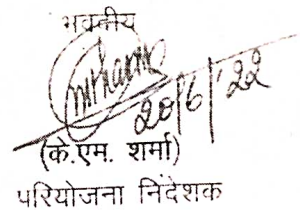 भवनीय
20/6/'22
(के.एम. शर्मा)
परियोजना निदेशक